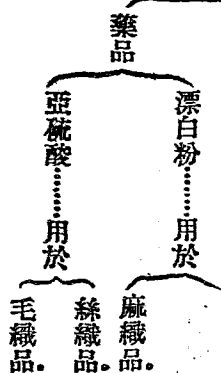 藥品
漂白粉………用於
麻織品.
亞硫酸………用於
絲織品.
毛織品.